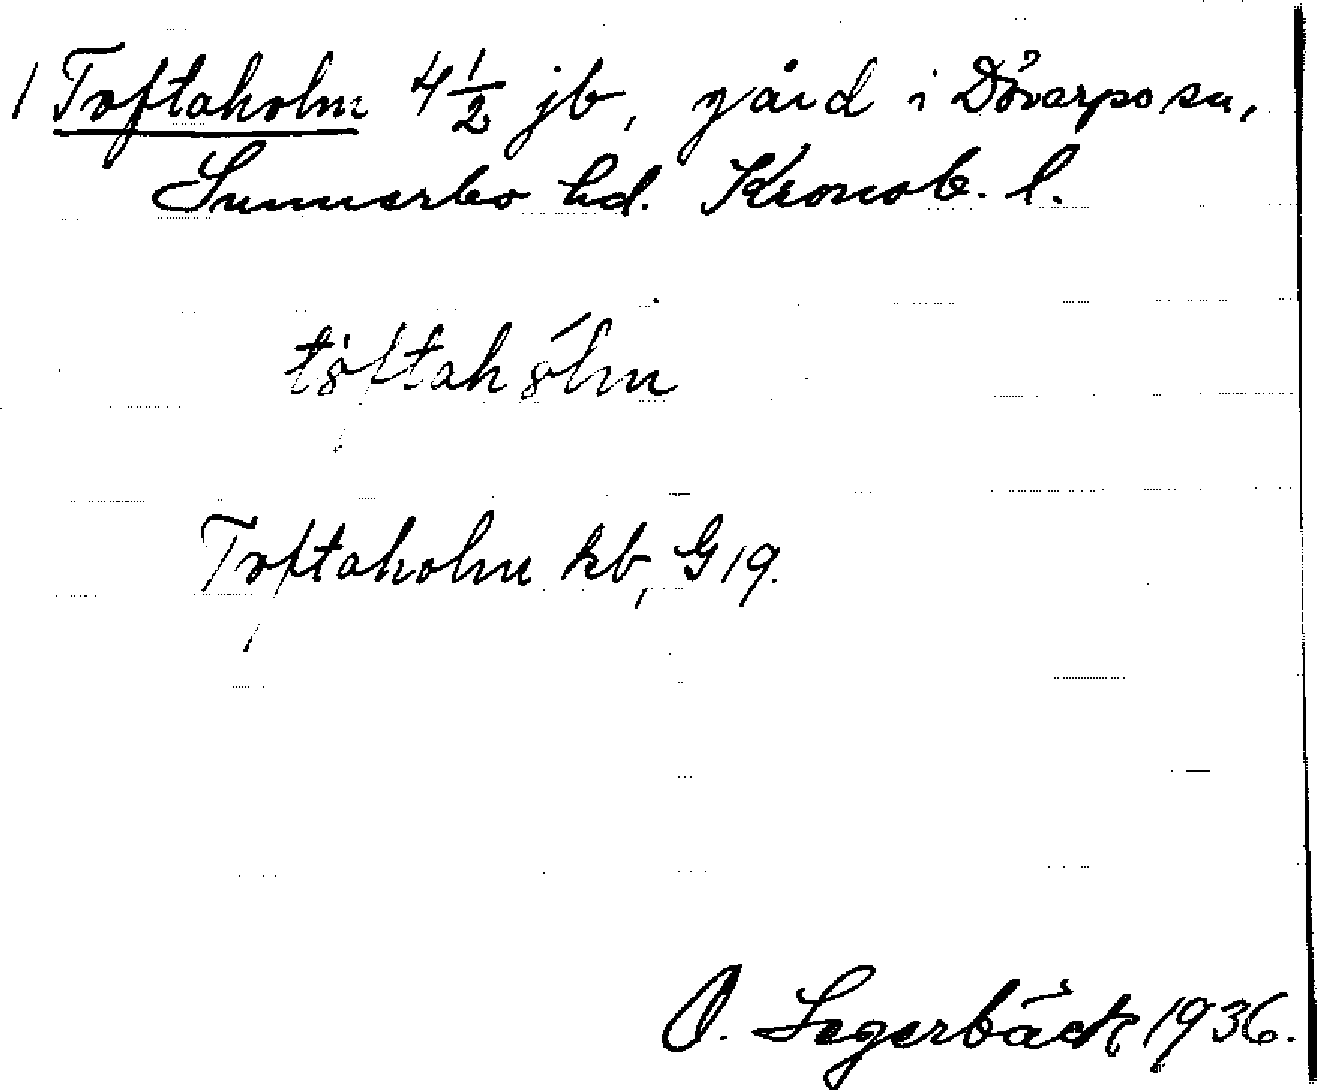 1 Toftaholm 4 1/2 jb, gård i Dövarpo sn,
Sunnerbo hd. Kronob. l.
töftahölm
Toftaholm kb, G 19.
O. Segerbäck 1936.